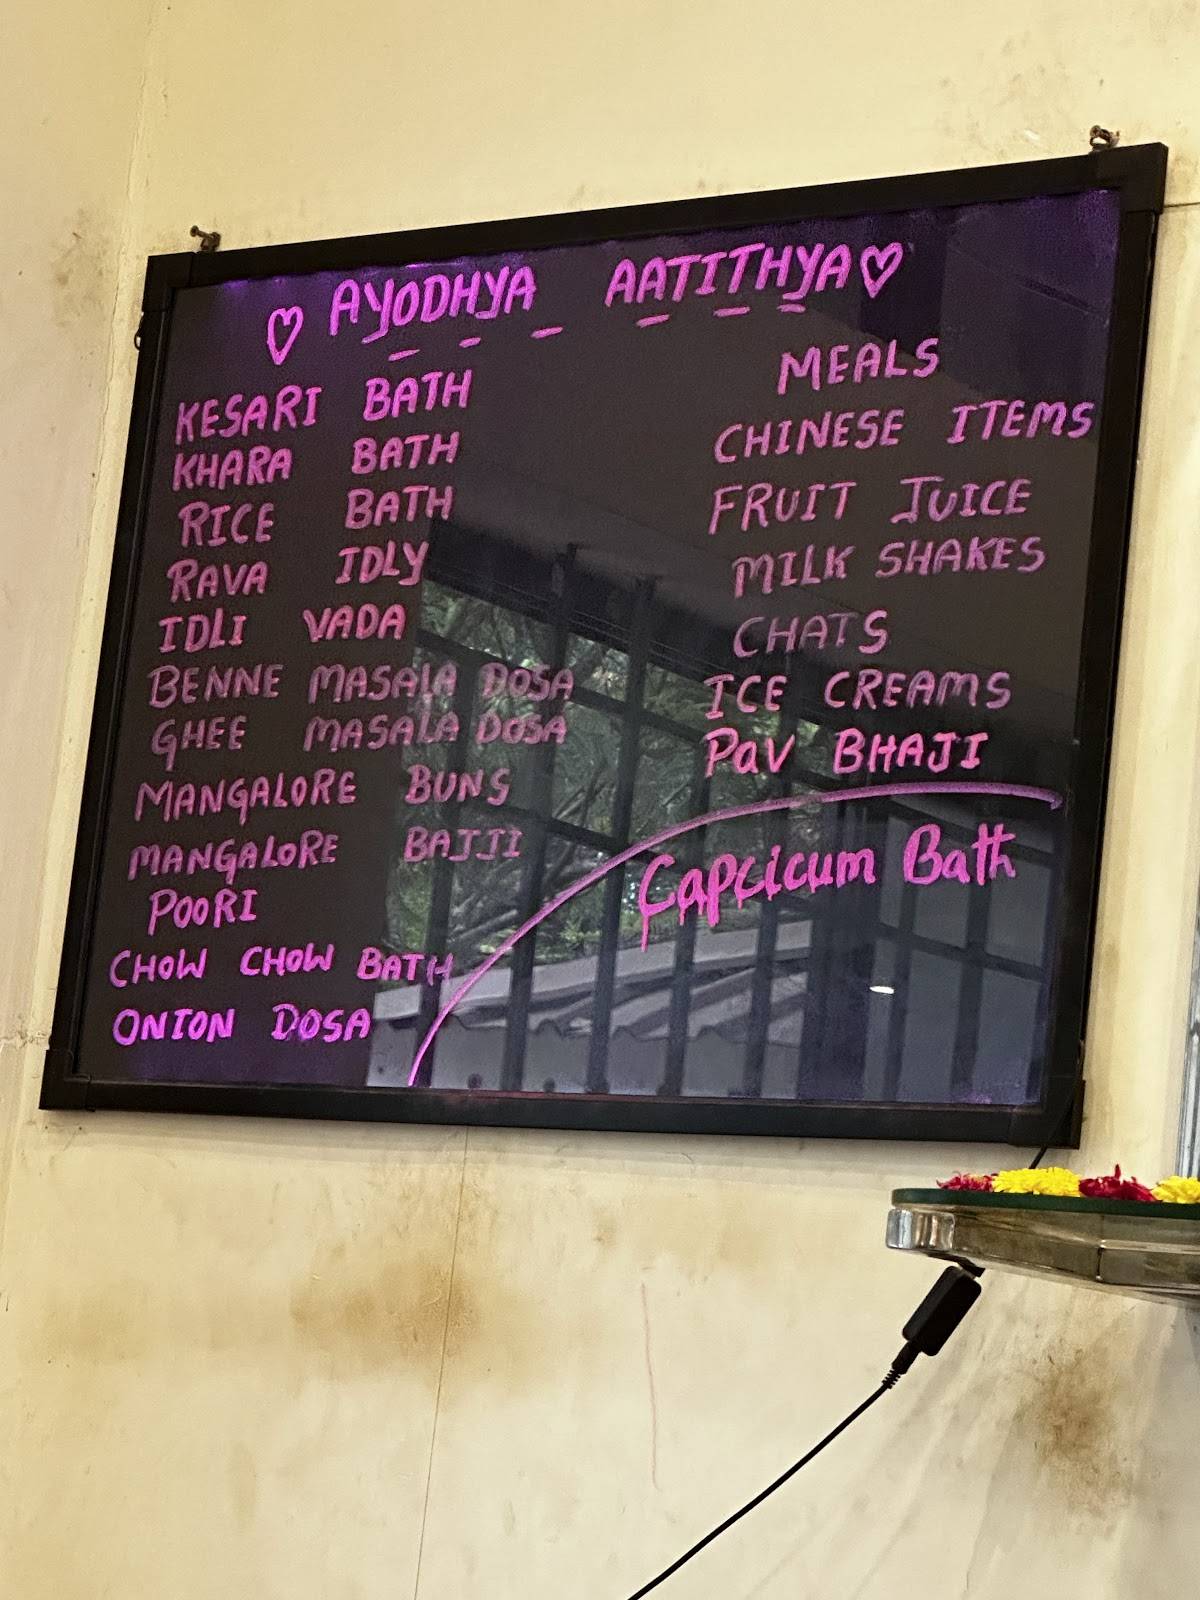 ♡ AYODHYA AATITHYA ♡
KESARI BATH
KHARA BATH
RICE BATH
RAVA IDLY
IDLI VADA
BENNE MASALA DOSA
GHEE MASALA DOSA
MANGALORE BUNS
MANGALORE BAJJI
POORI
CHOW CHOW BATH
ONION DOSA
MEALS
CHINESE ITEMS
FRUIT JUICE
MILK SHAKES
CHATS
ICE CREAMS
PaV BHAJI
Capcicum Bath